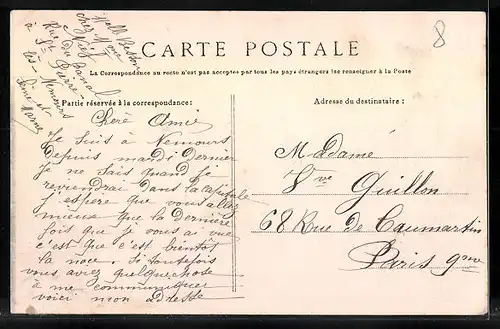 8
CARTE POSTALE
La Correspondance au recto n'est pas acceptée par tous les pays étrangers (se renseigner à la Poste
Partie réservée à la correspondance:
Adresse du destinataire:
Chère Amie
Je suis à Nemours
depuis mardi Dernier
Je ne sais quand je
reviendrai dans la capitale
J'espère que vous allez
mieux que la dernière
fois que je vous ai vue
c'est que c'est bientôt
la noce. Si toutefois
vous aviez quelque chose
à me communiquer
voici mon adresse
chez Mme
Rue St Pierre
à Nemours
Seine et Marne
Madame
Vve Guillon
68 Rue de Caumartin
Paris 9me